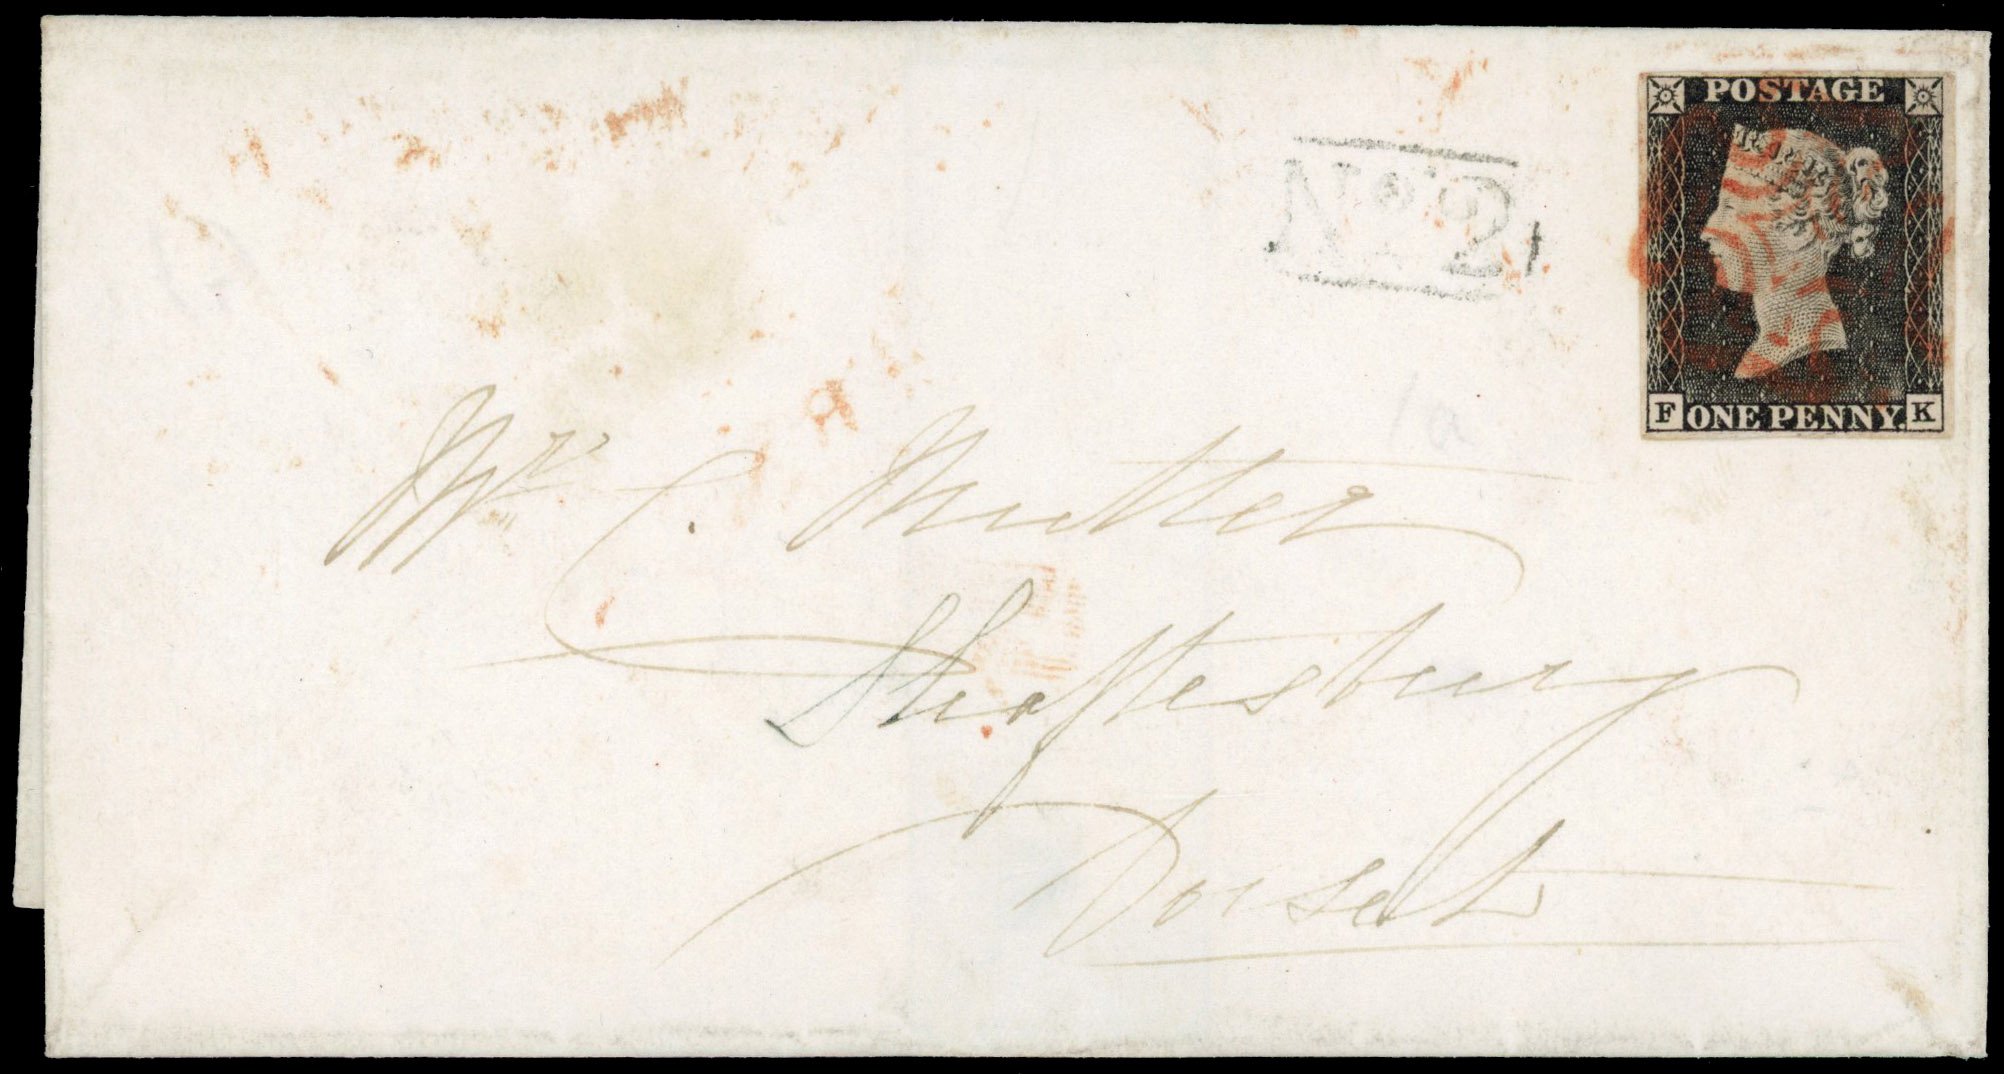 POSTAGE
No. 2
F ONE PENNY. K
1a
Mr. C. Mutter
Shaftesbury
Dorset